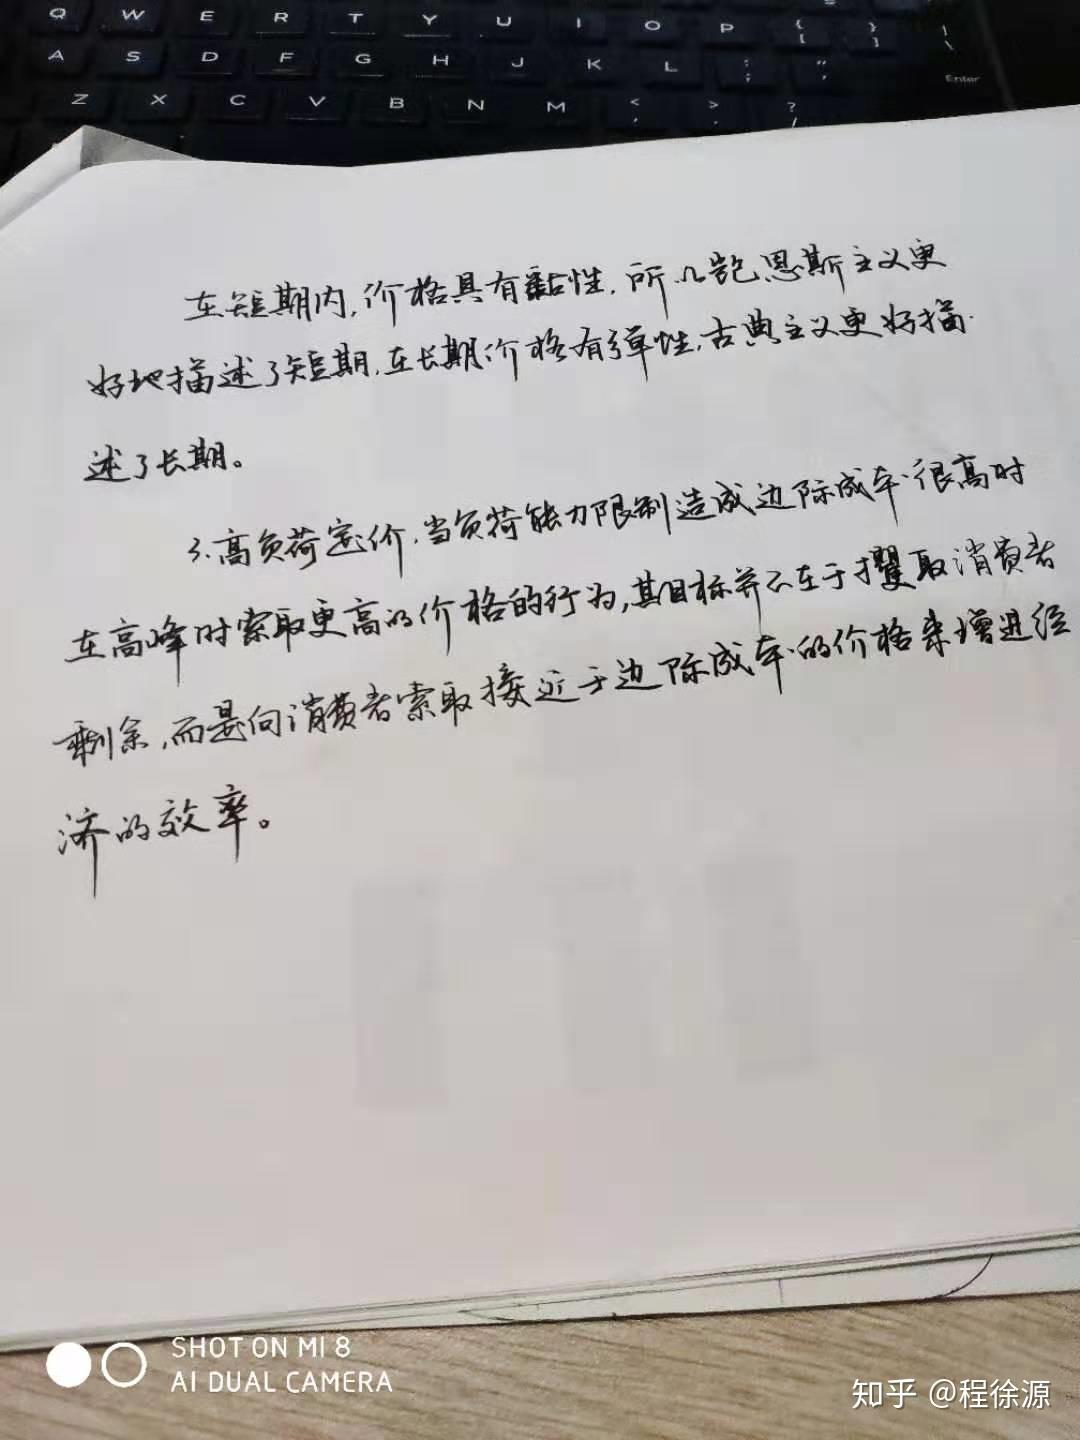 Q W E R T Y U I O P { [ } ] | \
A S D F G H J K L : ; " ' Enter
Z X C V B N M < , > . ? /
在短期内,价格具有黏性,所以凯恩斯主义更
好地描述了短期,在长期价格有弹性,古典主义更好描
述了长期。
3.高负荷定价,当负荷能力限制造成边际成本很高时
在高峰时索取更高的价格的行为,其目标并不在于攫取消费者
剩余,而是向消费者索取接近于边际成本的价格来增进经
济的效率。
SHOT ON MI 8
AI DUAL CAMERA
知乎 @程徐源